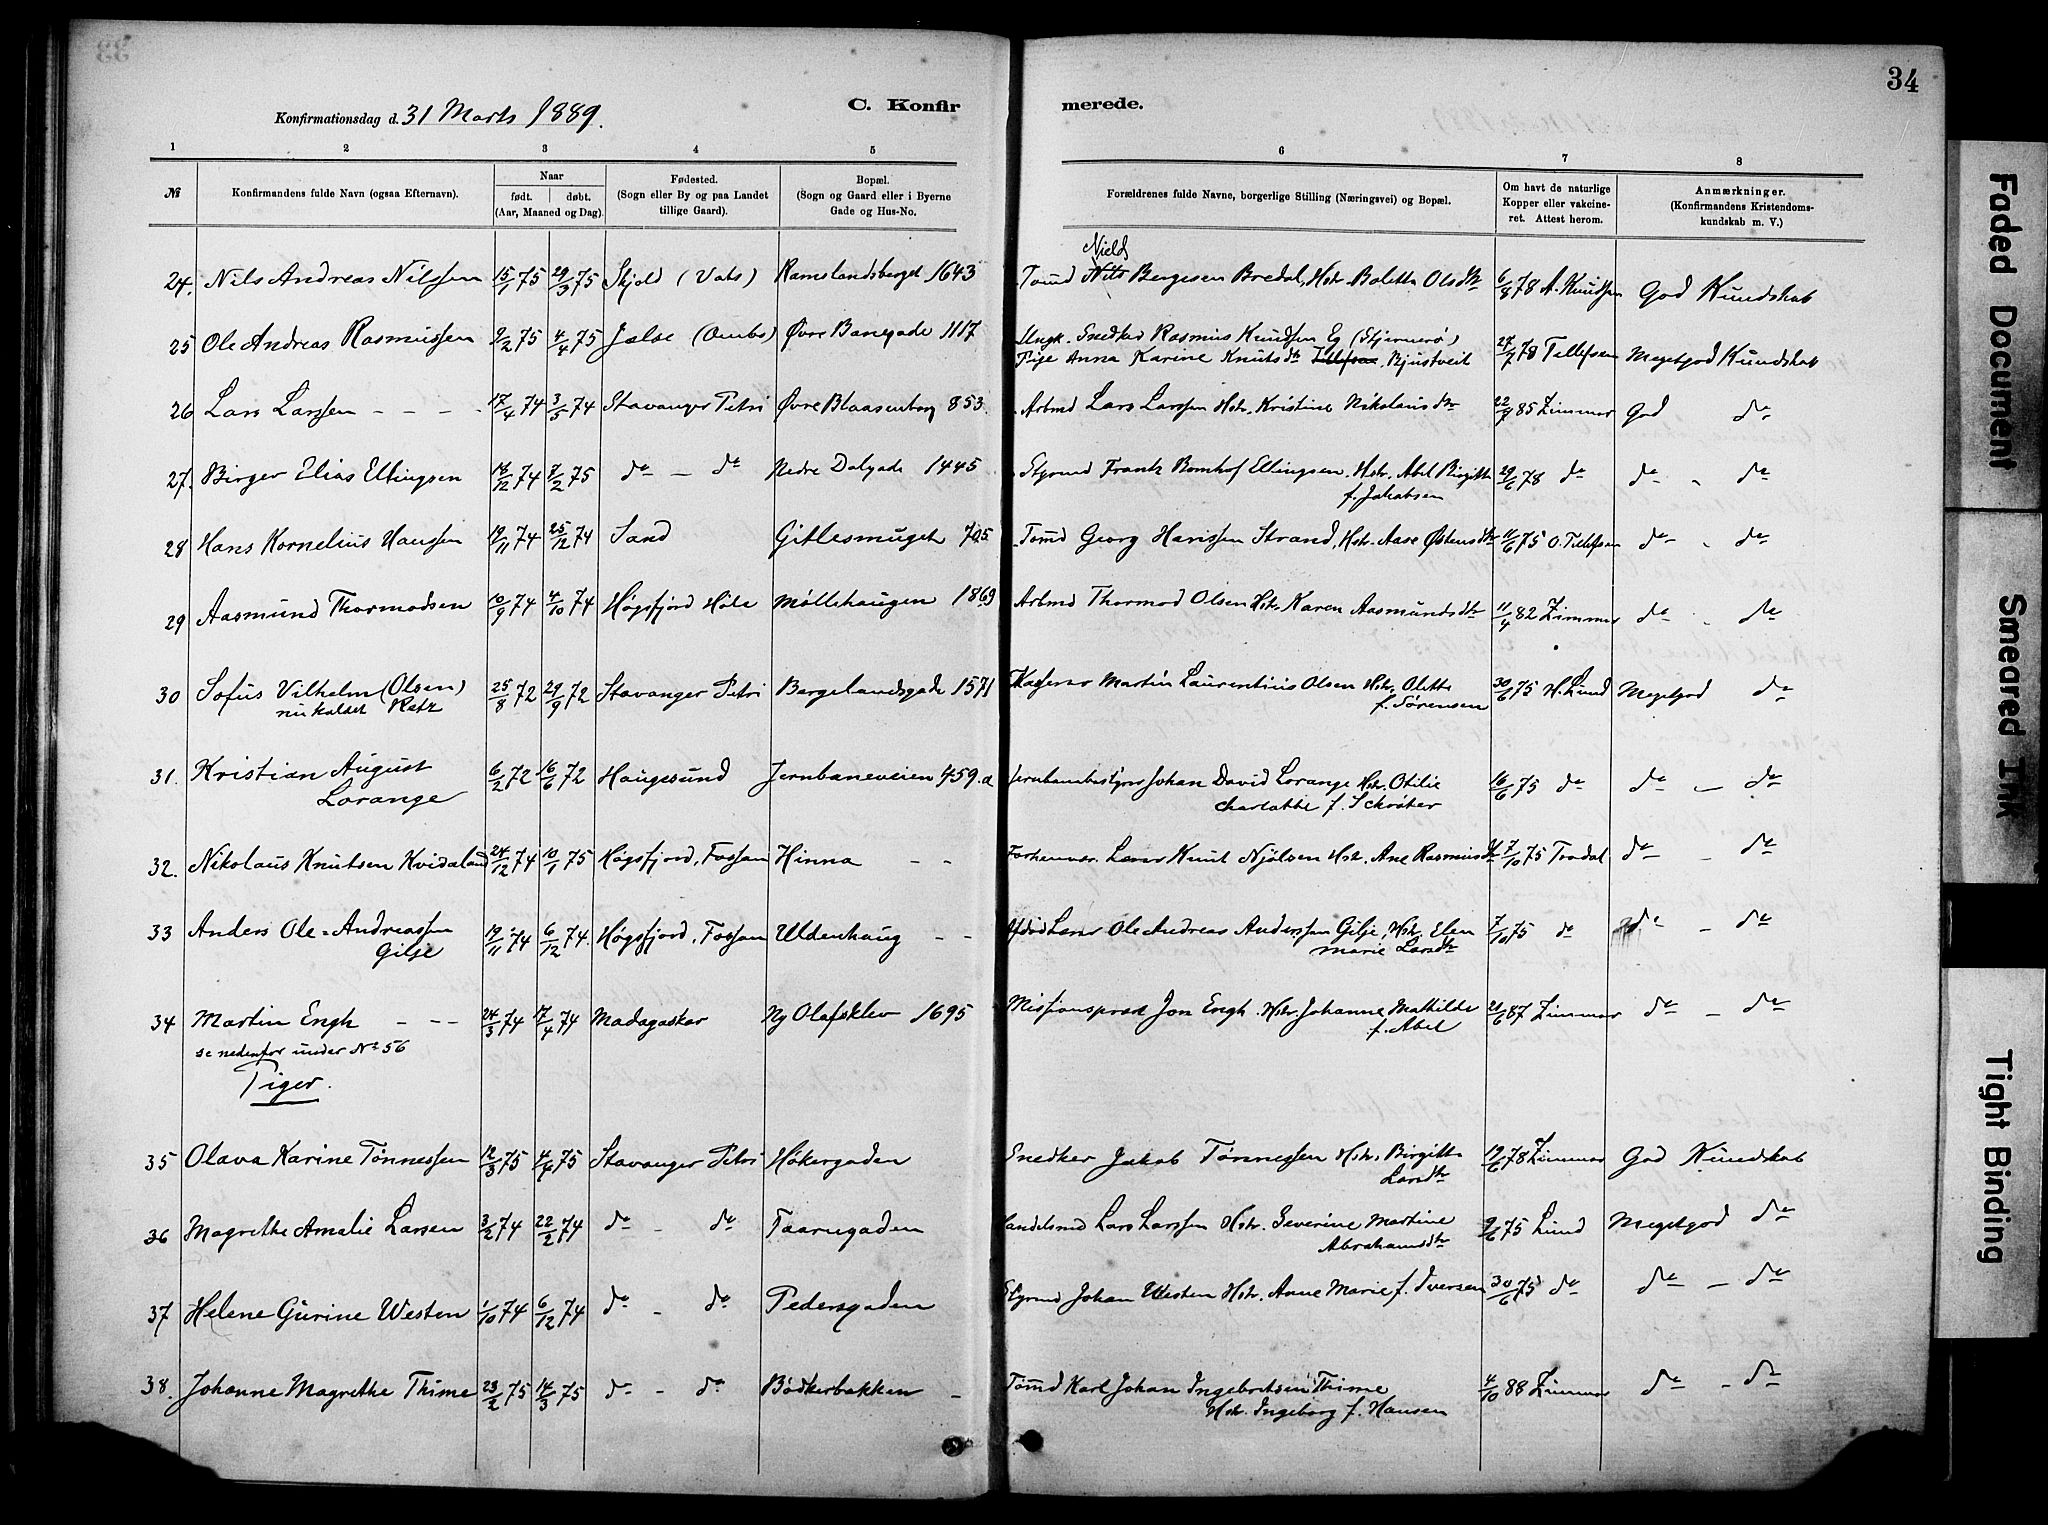 34
Konfirmationsdag d. 31 Marts 1889.
C. Konfirmerede.
1 2 3 4 5 6 7 8
№ Konfirmandens fulde Navn (ogsaa Efternavn). Naar født. døbt. (Aar, Maaned og Dag). Fødested. (Sogn eller By og paa Landet tillige Gaard). Bopæl. (Sogn og Gaard eller i Byerne Gade og Hus-No. Forældrenes fulde Navne, borgerlige Stilling (Næringsvei) og Bopæl. Om havt de naturlige Kopper eller vakcineret. Attest herom. Anmærkninger. (Konfirmandens Kristendomskundskab m. V.)
24. Nils Andreas Nilssen 15/1 75 29/3 75 Skjold (Vats) Ramslandsberget 1643 Tømd Niels Bergesen Bredal, Hstr. Boletta Olsdtr 6/8 78 A. Knudsen God Kundskab
25 Ole Andreas Rasmussen 9/2 75 4/4 75 Jelse (Ombo) Øvre Banegade 1117 Ungk. Snedker Rasmus Knudsen Eg (Stjernerø) 27/7 78 Tellefsen Megetgod Kundskab
Pige Anna Karine Knutsdtr Bjustveit
26 Lars Larssen - - - 17/4 74 3/5 74 Stavanger Petri Øvre Blaasenborg 853. Arbmd Lars Larssen Hstr. Kristine Nikolausdtr 22/7 85 Zimmer God do
27. Birger Elias Ellingsen 16/12 74 7/2 75 do - do Nedre Dalgade 1445 Styrmd Frank Bomhof Ellingsen, Hstr. Abel Birgitte 29/6 78 do do - do
f. Jakobsen
28 Hans Kornelius Hanssen 19/11 74 25/12 74 Sand Gitlesmuget 705 Tømd Georg Hanssen Strand, Hstr. Aase Østensdtr 11/6 75 O. Tellefsen do - do
29 Aasmund Thormodsen 10/9 74 4/10 74 Høgsfjord Høle Møllehaugen 1869 Arbmd Thormod Olsen Hstr. Karen Aasmundsdtr 11/4 82 Zimmer do - do
30 Sofus Vilhelm (Olsen) 25/8 72 29/9 72 Stavanger Petri Bergelandsgade 1571 Kasserer Martin Laurentius Olsen Hstr. Olette 30/6 75 H. Lund Megetgod do
nu kaldet Retz f. Sørensen
31. Kristian August 6/2 72 16/6 72 Haugesund Jernbaneveien 459.a Jernbanebestyrer Johan David Lorange Hstr. Otilie 16/6 75 do do - do
Lorange Charlotte f. Schrøter
32. Nikolaus Knutsen Kvidaland 24/12 74 10/1 75 Høgsfjord, Fossan Hinna - - Forhenvær. Lærer Knut Njølsen Hstr. Ane Rasmusdtr 7/10 75 Tradal do - do
33 Anders Ole-Andreassen 19/11 74 6/12 74. Høgsfjord, Fossan Uldenhaug - - Afdød Lærer Ole Andreas Anderssen Gilje, Hstr. Elen 7/10 75 do do - do
Gilje Marie Larsdtr
34 Martin Engh - - - 24/3 74 17/4 74 Madagaskar Ny Olafsklev 1695 Missionsprest Jon Engh. Hstr. Johanne Mathilde 21/6 87 Zimmer do - do
se nedenfor under No 56 f. Abel
Piger.
35 Olava Karine Tønnessen 12/3 75 4/6 75 Stavanger Petri Høkergaden Snedker Jakob Tønnessen Hstr. Birgitte 19/6 78 Zimmer God Kundskab
Larsdtr
36 Magrethe Amalie Larsen 3/2 74 22/2 74 do - do Taarngaden Handelsmd Lars Larssen Hstr. Severine Martine 9/6 75 Lund Megetgod do
Abrahamsdtr
37 Helene Gurine Westen 1/10 74 6/12 74 do - do Pedersgaden Styrmd Johan Westen Hstr. Anne Marie f. Iversen 30/6 75 do do - do
38. Johanne Magrethe Thime 23/2 75 14/3 75 do - do Bødkerbakken - Tømd Karl Johan Ingebretsen Thime 4/10 88 Zimmer do - do
Hstr. Ingeborg f. Hansen
Faded Document
Smeared Ink
Tight Binding